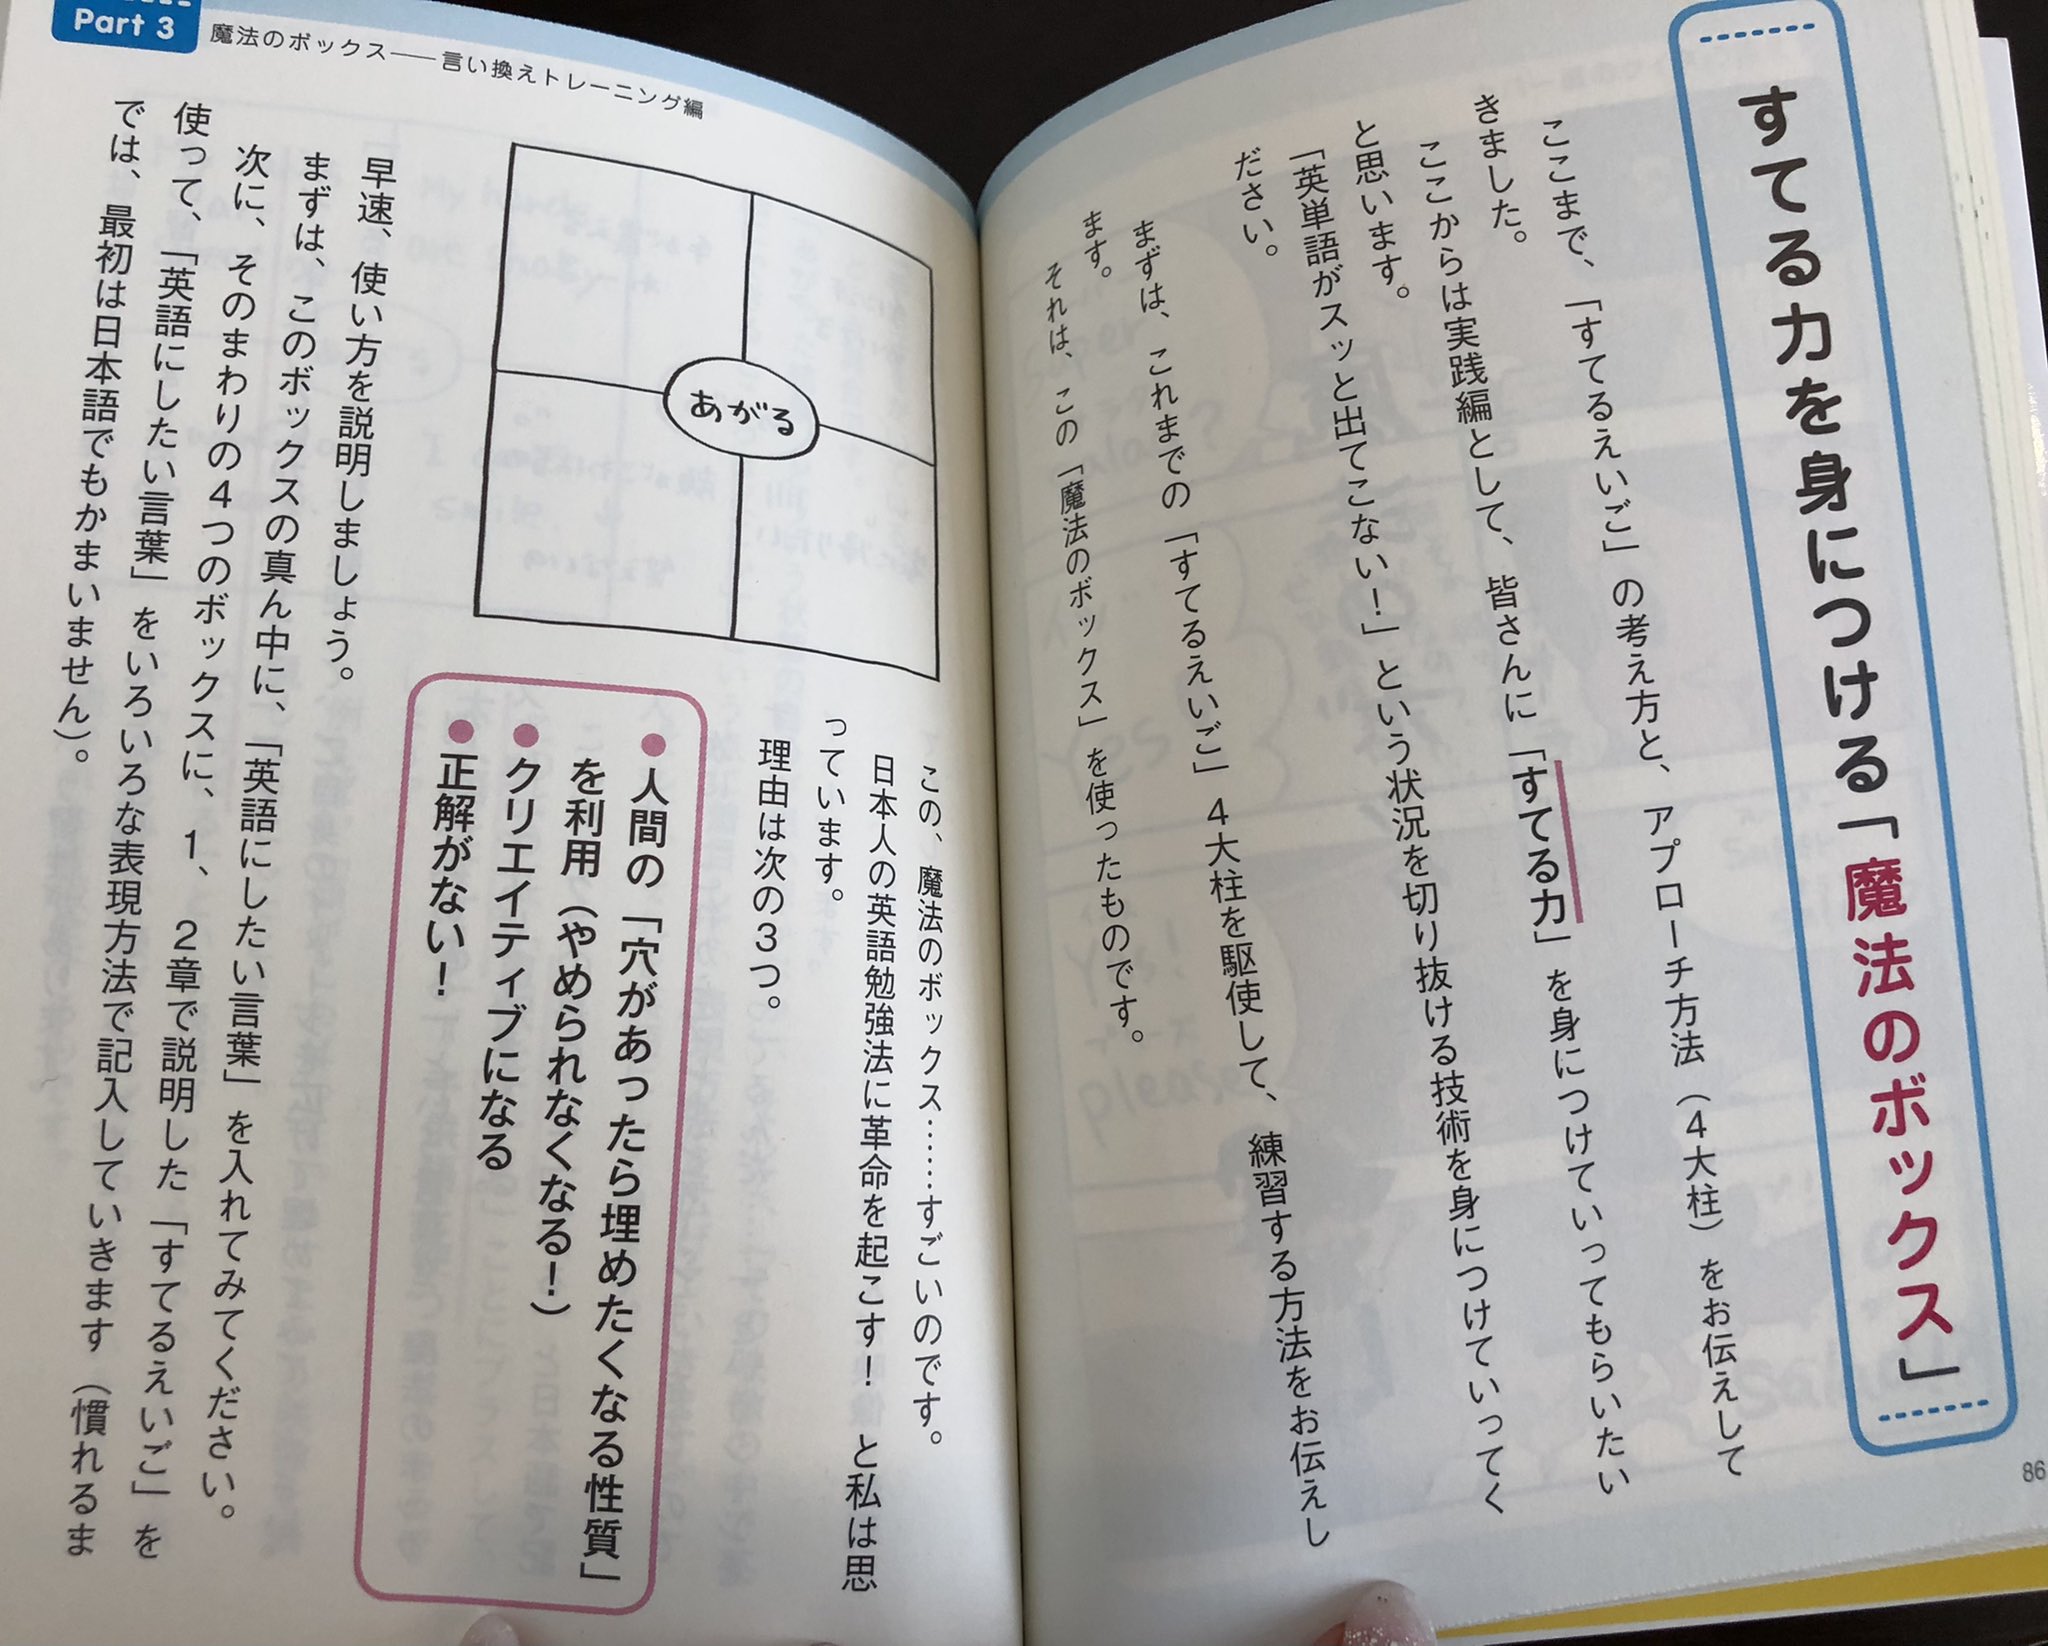 すてる力を身につける「魔法のボックス」
ここまで、「すてるえいご」の考え方と、アプローチ方法（4大柱）をお伝えして
きました。
ここからは実践編として、皆さんに「すてる力」を身につけていってもらいたい
と思います。
「英単語がスッと出てこない！」という状況を切り抜ける技術を身につけていってく
ださい。
まずは、これまでの「すてるえいご」4大柱を駆使して、練習する方法をお伝えし
ます。
それは、この「魔法のボックス」を使ったものです。
86
Part 3
魔法のボックス――言い換えトレーニング編
あがる
この、魔法のボックス……すごいのです。
日本人の英語勉強法に革命を起こす！と私は思
っています。
理由は次の3つ。
●人間の「穴があったら埋めたくなる性質」
を利用（やめられなくなる！）
●クリエイティブになる
●正解がない！
早速、使い方を説明しましょう。
まずは、このボックスの真ん中に、「英語にしたい言葉」を入れてみてください。
次に、そのまわりの4つのボックスに、1、2章で説明した「すてるえいご」を
使って、「英語にしたい言葉」をいろいろな表現方法で記入していきます（慣れるま
では、最初は日本語でもかまいません）。